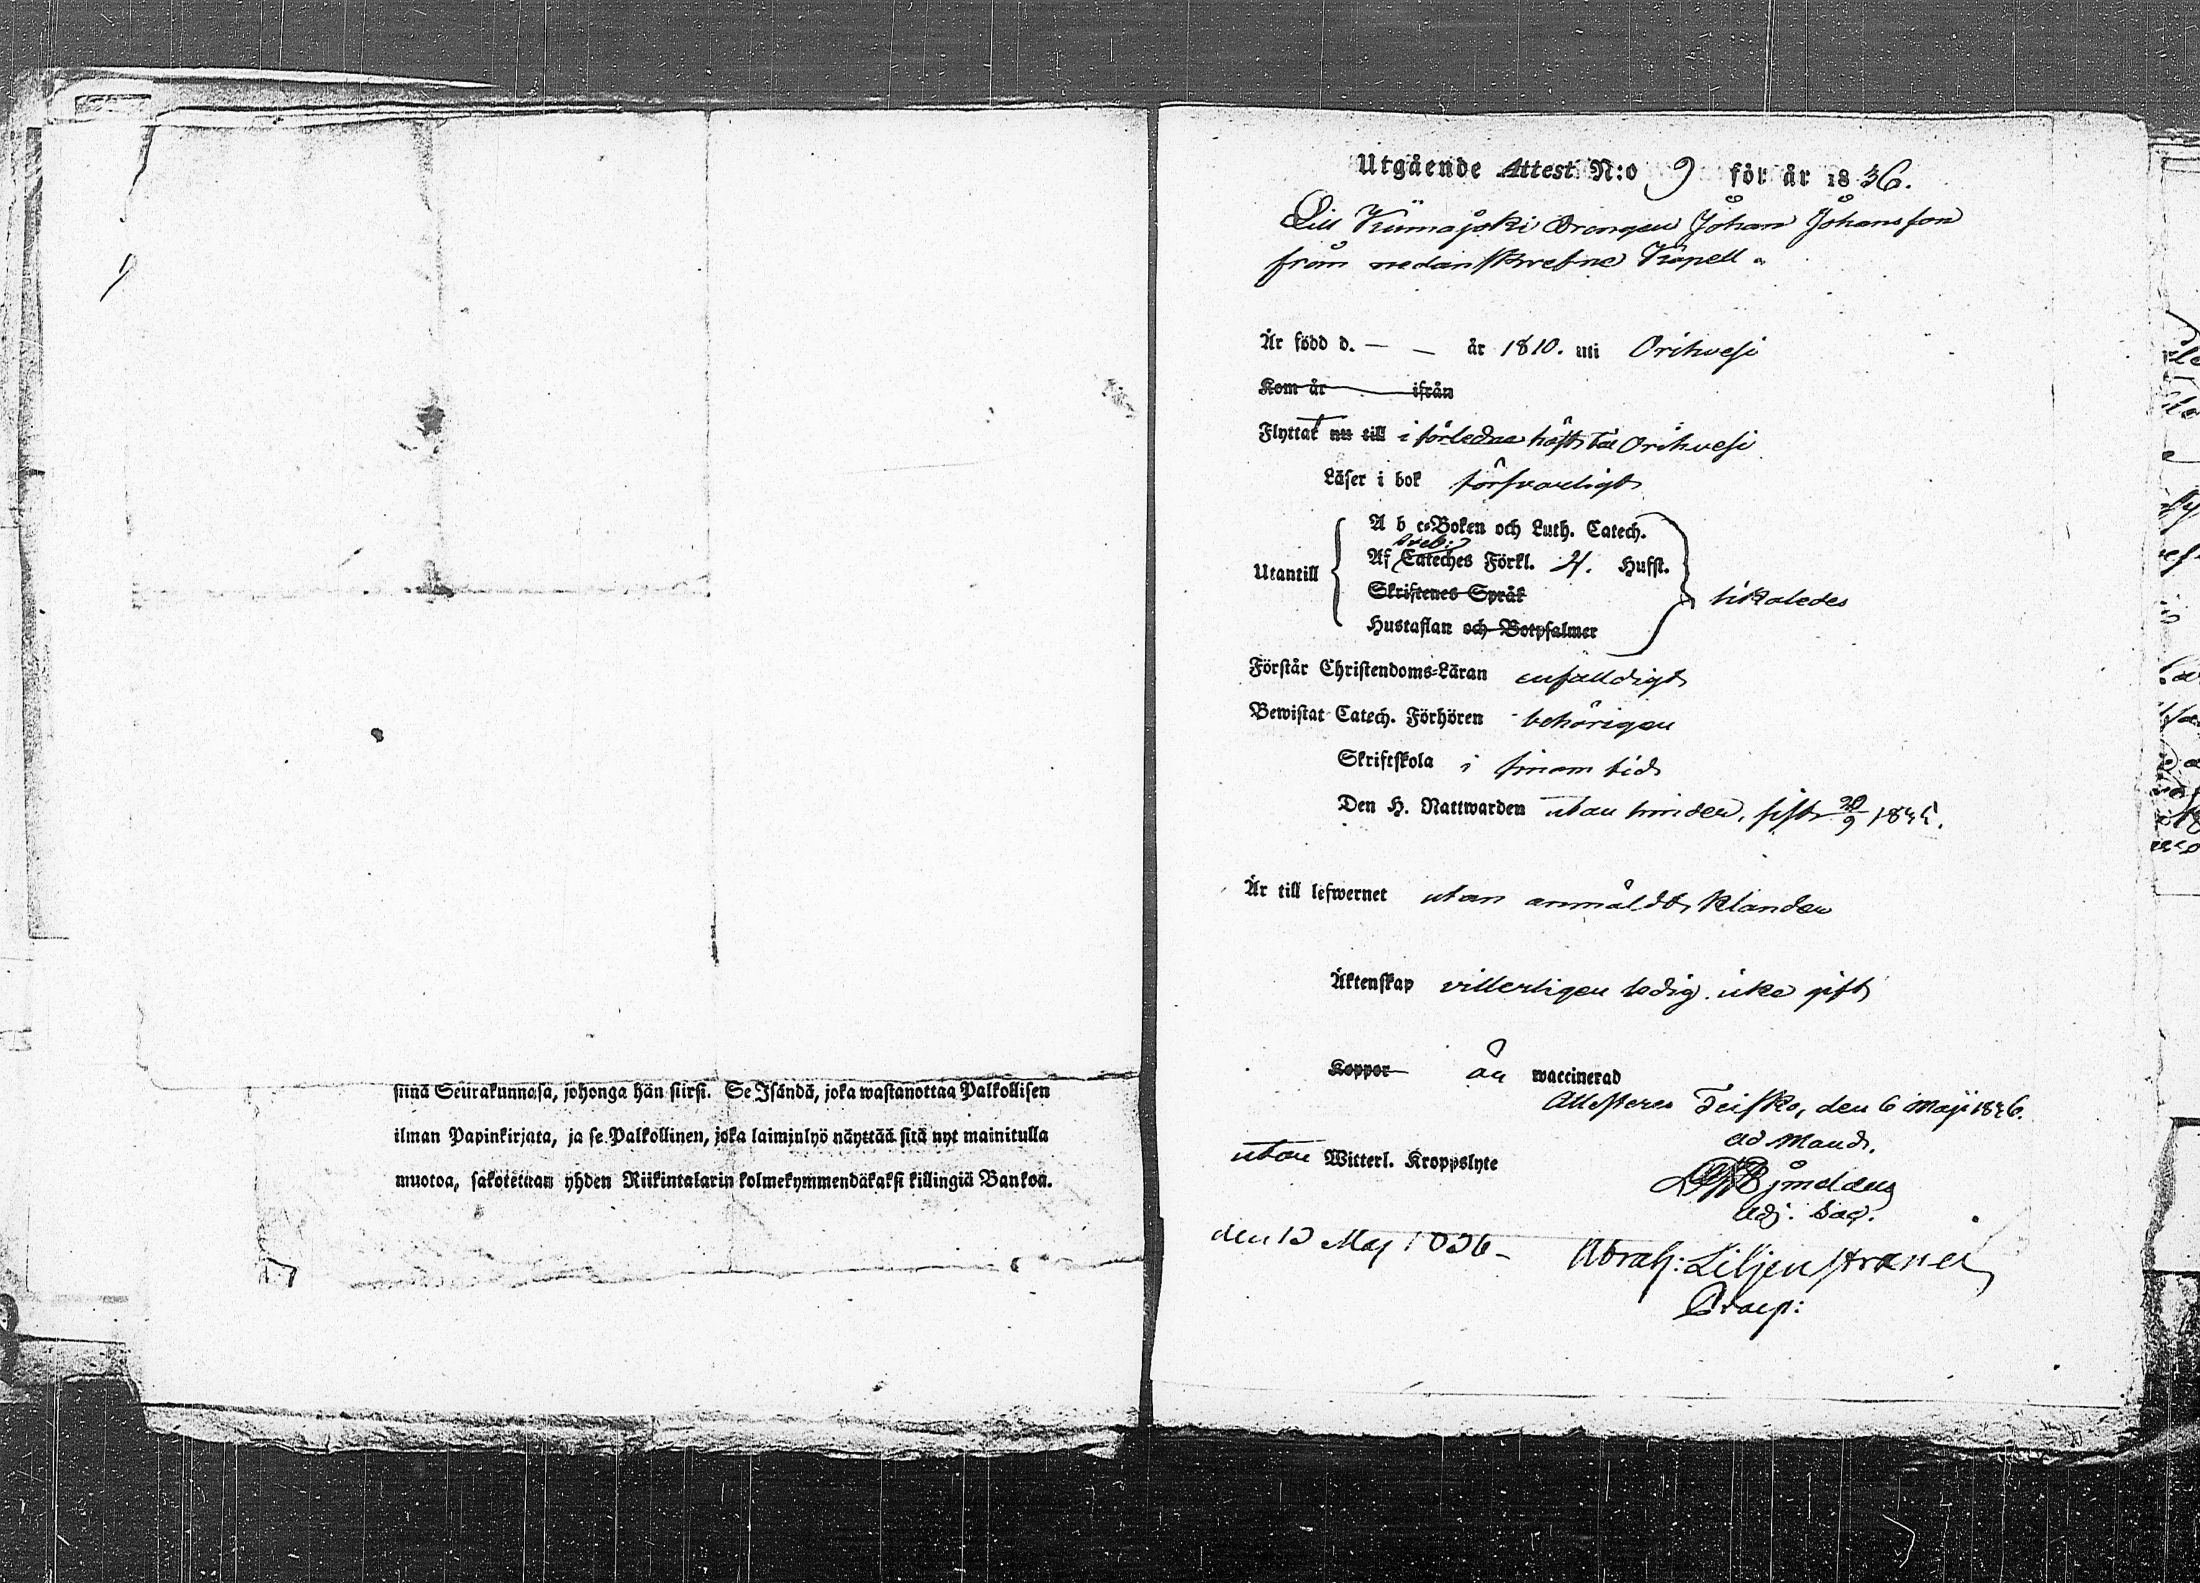 siinä Seurakunnasa, johonga hän siirsi. Se Isändä, joka wastanottaa Palkollisen
ilman Papinkirjata, ja se Palkollinen, joka laiminlyö näyttää sitä nyt mainitulla
muotoa, sakotetaan yhden Riikintalarin kolmekymmendäkaksi killingiä Bankoa.
Utgående Attest N:o 9 för år 1836.
Drengen Johan Johansson
från nedanskrefne Kapell
Är född d. — — år 1810. uti Orihvesi
Kom år ifrån
Flyttat nu till i förledne höst till Orihvesi
Läser i bok försvarligt
A b c-Boken och Luth. Catech.
Utantill Af Sveb: Cateches Förkl. 4. Hufst.
Skriftenes Språk likaledes
Hustaflan och Botpsalmer
Förstår Christendoms-Läran enfalldigt
Bewistat Catech. Förhören behörigen
Skriftskola i sinom tid
Den H. Nattwarden utan hinder, sist 20/9 1835.
Är till lefwernet utan anmäldt klander
Äktenskap vitterligen ledig. icke gift
Koppor är waccinerad
Attesteres Teisko, den 6 Maji 1836.
ad Mand.
utan Witterl. Kroppslyte
Adj. Sac.
den 1 Maj 1836 – Abrah: Liljenstrand